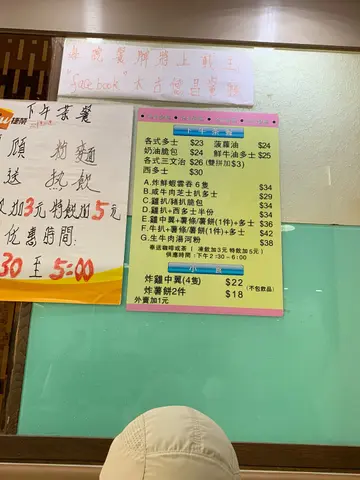 每晚業牌將上載至
"facebook"太古億昌餐廳
捷榮
下午茶餐
頂 粉麵
送 熱飲
加3元 特飲加5元
優惠時間:
30 至 5:00
下午茶餐
各式多士 $23 菠蘿油 $24
奶油脆包 $24 鮮牛油多士 $25
各式三文治 $26 (雙拼加$3)
西多士 $30
A.炸鮮蝦雲吞6隻 $34
B.咸牛肉芝士扒多士 $29
C.雞扒/豬扒脆包 $34
D.雞扒+西多士半份 $34
E.雞中翼+薯條/薯餅(1件)+多士 $36
F.牛扒+薯條/薯餅(1件)+多士 $42
G.生牛肉湯河粉 $38
奉送咖啡或茶 ( 凍飲加3元 特飲加5元 )
供應時間:下午2:30-6:00
小食
炸雞中翼(4隻) $22
炸薯餅2件 $18 (不包飲品)
外賣加1元